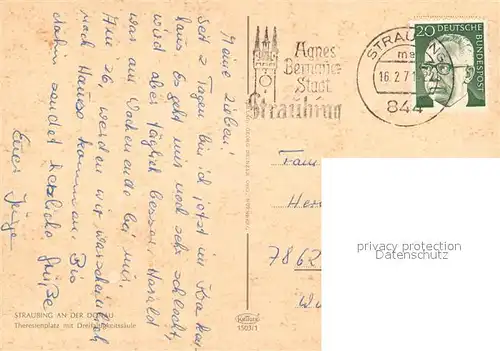 Meine Lieben!
Seit 2 Tagen bin ich jetzt im Kranken
haus. Es geht mir noch sehr schlecht,
wird aber täglich besser. Harald
war am Wochenende bei mir.
Am 26. werden wir wahrscheinlich
nach Hause kommen. Bis
dahin sendet herzliche Grüße
Eure
STRAUBING AN DER DONAU
Theresienplatz mit Dreifaltigkeitssäule
KRÜGER
1503/1
Agnes
Bernauer
Stadt
Straubing
STRAUBING
16.2.71
844
20 DEUTSCHE
BUNDESPOST
Fam
Her
7862
privacy protection
Datenschutz